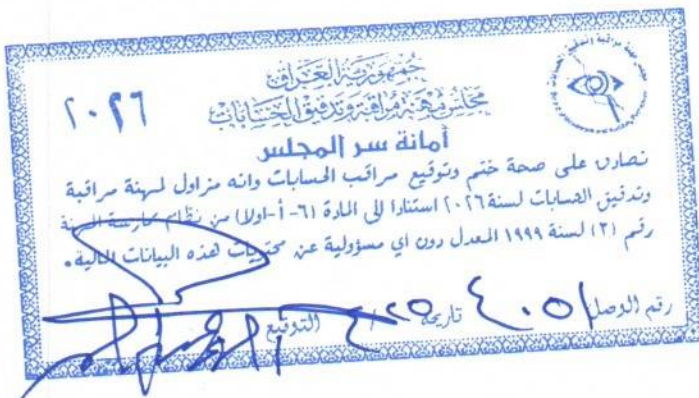 جمهورية العراق
مجلس مهنة مراقبة وتدقيق الحسابات
٢٠٢٦
أمانة سر المجلس
نصادق على صحة ختم وتوقيع مراقب الحسابات وانه مزاول لمهنة مراقبة
وتدقيق الحسابات لسنة ٢٠٢٦ استنادا الى المادة (٦١- أ-اولا) من نظام ممارسة المهنة
رقم (٣) لسنة ١٩٩٩ المعدل دون اي مسؤولية عن محتويات هذه البيانات المالية.
رقم الوصل تاريخه التوقيع